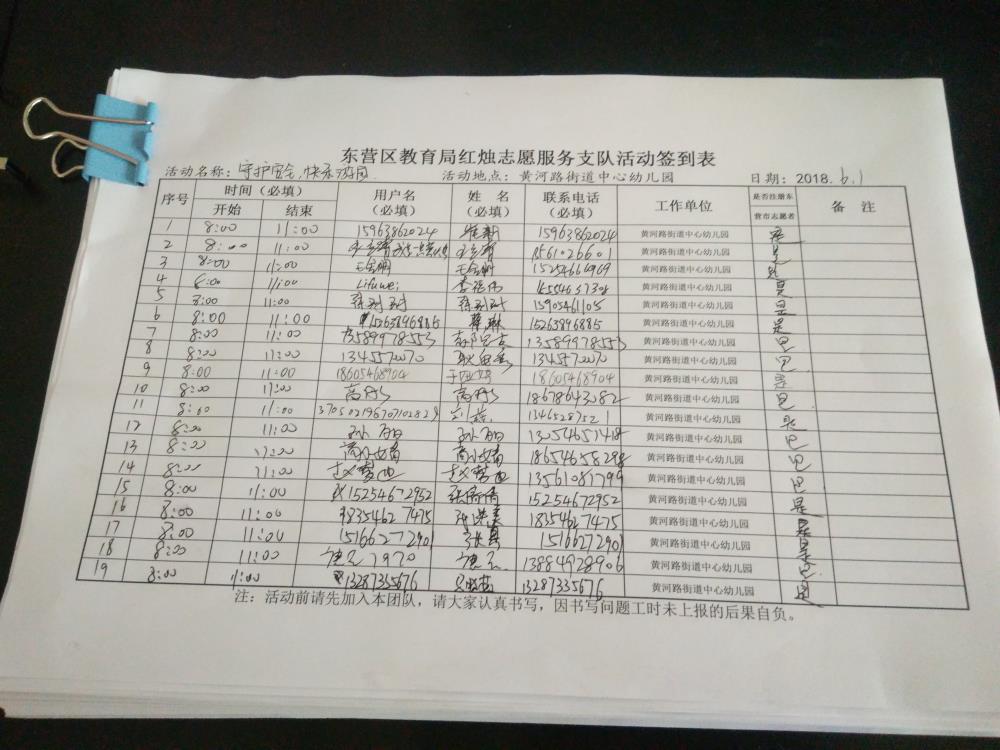 东营区教育局红烛志愿服务支队活动签到表
活动名称：守护安全，快乐游园 活动地点：黄河路街道中心幼儿园 日期：2018.6.1
序号 时间（必填） 用户名（必填） 姓名（必填） 联系电话（必填） 工作单位 是否注册东营市志愿者 备注
开始 结束
1 8:00 11:00 15963862024 15963862024 黄河路街道中心幼儿园 是
2 8:00 11:00 18561026601 黄河路街道中心幼儿园 是
3 8:00 11:00 黄河路街道中心幼儿园 是
4 8:00 11:00 Lifuwei 黄河路街道中心幼儿园 是
5 8:00 11:00 15905461105 黄河路街道中心幼儿园 是
6 8:00 11:00 15263896885 15263896885 黄河路街道中心幼儿园 是
7 8:00 11:00 13589978553 13589978553 黄河路街道中心幼儿园 是
8 8:00 11:00 黄河路街道中心幼儿园 是
9 8:00 11:00 18605468904 18605468904 黄河路街道中心幼儿园 是
10 8:00 11:00 18678643082 黄河路街道中心幼儿园 是
11 8:00 11:00 13465287521 黄河路街道中心幼儿园 是
12 8:00 11:00 13054651418 黄河路街道中心幼儿园 是
13 8:00 11:00 18654658298 黄河路街道中心幼儿园 是
14 8:00 11:00 13561081799 黄河路街道中心幼儿园 是
15 8:00 11:00 15254672952 张倩倩 15254672952 黄河路街道中心幼儿园 是
16 8:00 11:00 18354627475 18354627475 黄河路街道中心幼儿园 是
17 8:00 11:00 15166272901 张真 15166272901 黄河路街道中心幼儿园 是
18 8:00 11:00 13884928906 黄河路街道中心幼儿园 是
19 8:00 11:00 13287335676 13287335676 黄河路街道中心幼儿园 是
注：活动前请先加入本团队，请大家认真书写，因书写问题工时未上报的后果自负。